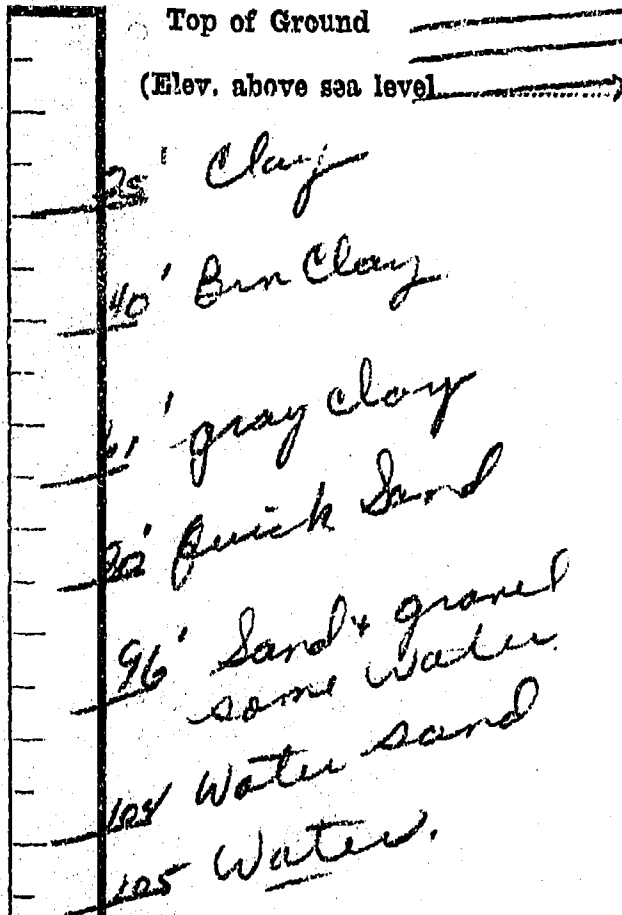 Top of Ground
(Elev. above sea level
25' Clay
40' Brn Clay
61' gray clay
Quick Sand
96' Sand + gravel
some water
104 Water sand
105 Water.